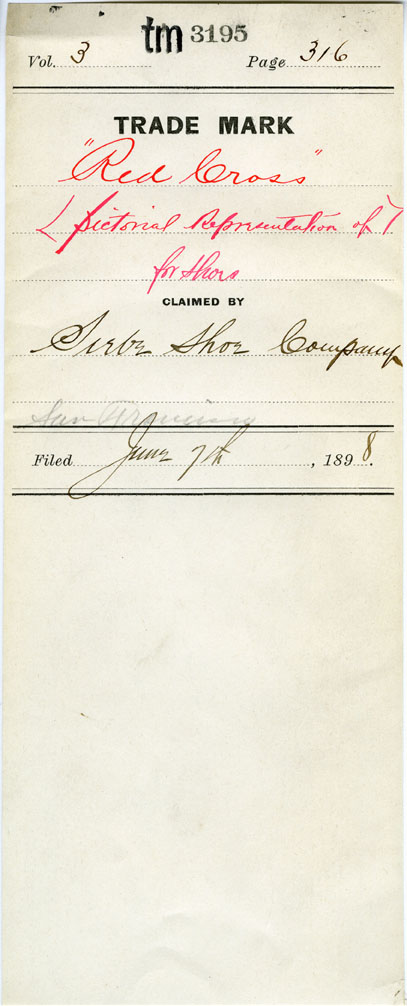 tm 3195
Vol. 3 Page 316
TRADE MARK
"Red Cross"
(pictorial Representation of)
for shoes
CLAIMED BY
Siebe Shoe Company
San Francisco
Filed June 7th, 1898.